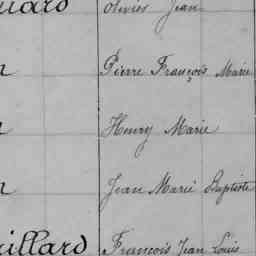 olivier Jean
Pierre François Marie
Henry Marie
Jean Marie Baptiste
François Jean Louis